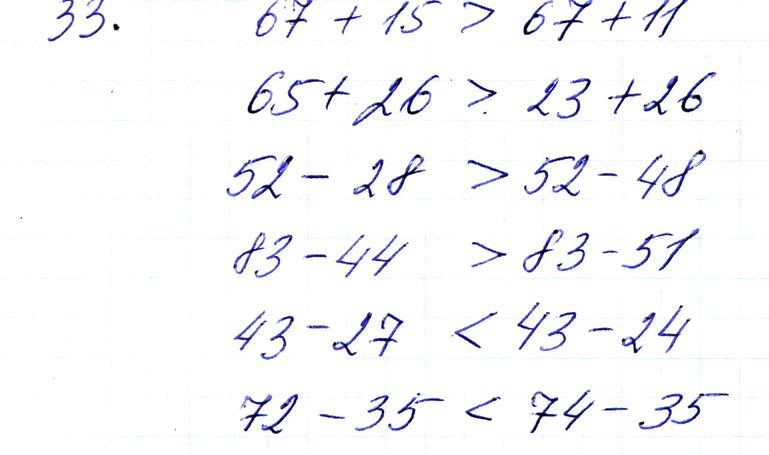 33. 67 + 15 > 67 + 11
65 + 26 > 23 + 26
52 - 28 > 52 - 48
83 - 44 > 83 - 51
43 - 27 < 43 - 24
72 - 35 < 74 - 35